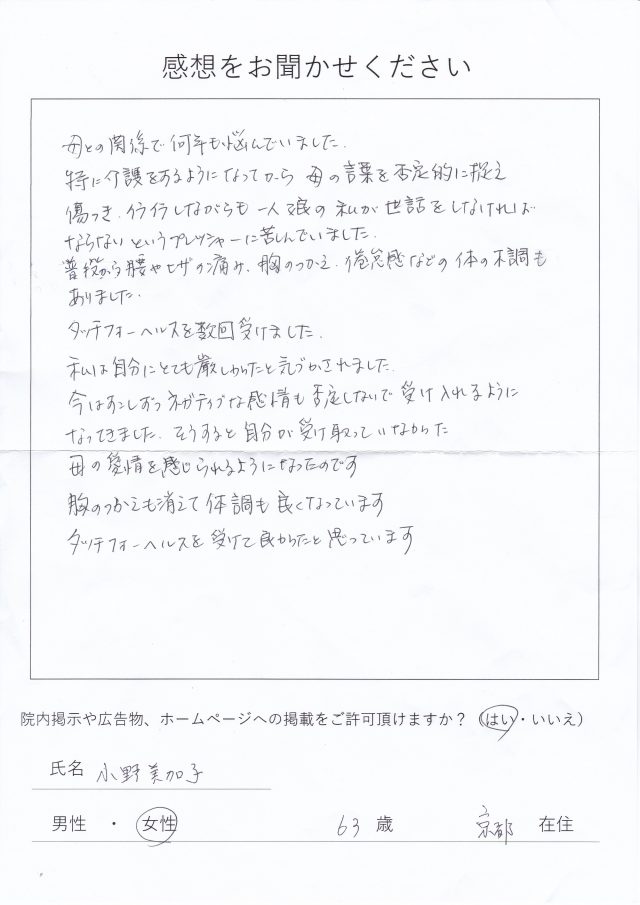 感想をお聞かせください
母との関係で何年も悩んでいました.
特に介護をするようになってから 母の言葉を否定的に捉え
傷つき、イライラしながらも 一人娘の私が世話をしなければ
ならないというプレッシャーに苦しんでいました.
普段から腰やヒザの痛み、胸のつかえ、倦怠感などの体の不調も
ありました.
タッチフォーヘルスを数回受けました.
私は自分にとても厳しかったと気づかされました.
今はすこしずつネガティブな感情も否定しないで受け入れるように
なってきました. そうすると自分が受け取っていなかった
母の愛情を感じられるようになったのです
胸のつかえも消えて体調も良くなっています
タッチフォーヘルスを受けて良かったと思っています
院内掲示や広告物、ホームページへの掲載をご許可頂けますか？（はい・いいえ）
氏名 小野美加子
男性 ・ 女性 63 歳 京都 在住